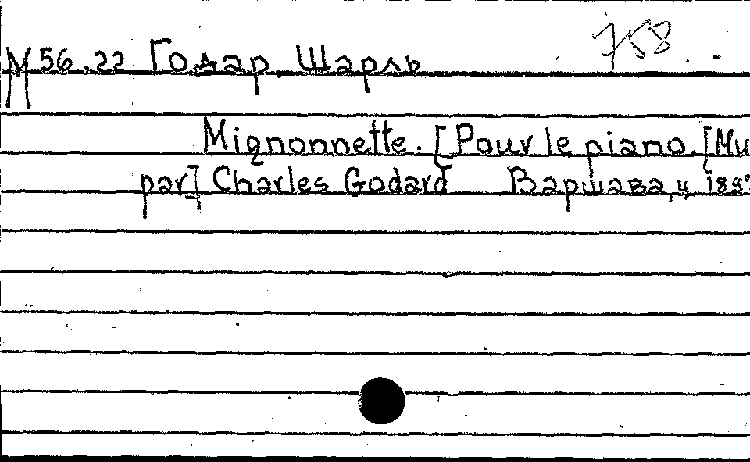 758
М 56.22 Годар, Шарль
Mignonnette. [Pour le piano. [Mu
par] Charles Godard Варшава, ц. 189